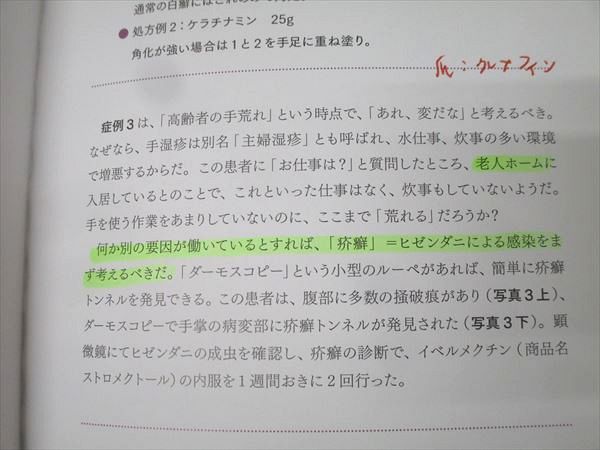 通常の白癬には
● 処方例2：ケラチナミン　25g
角化が強い場合は1と2を手足に重ね塗り。
爪：クレナフィン
症例3は、「高齢者の手荒れ」という時点で、「あれ、変だな」と考えるべき。
なぜなら、手湿疹は別名「主婦湿疹」とも呼ばれ、水仕事、炊事の多い環境
で増悪するからだ。この患者に「お仕事は？」と質問したところ、老人ホームに
入居しているとのことで、これといった仕事はなく、炊事もしていないようだ。
手を使う作業をあまりしていないのに、ここまで「荒れる」だろうか？
何か別の要因が働いているとすれば、「疥癬」＝ヒゼンダニによる感染をま
ず考えるべきだ。「ダーモスコピー」という小型のルーペがあれば、簡単に疥癬
トンネルを発見できる。この患者は、腹部に多数の掻破痕があり（写真3上）、
ダーモスコピーで手掌の病変部に疥癬トンネルが発見された（写真3下）。顕
微鏡にてヒゼンダニの成虫を確認し、疥癬の診断で、イベルメクチン（商品名
ストロメクトール）の内服を1週間おきに2回行った。